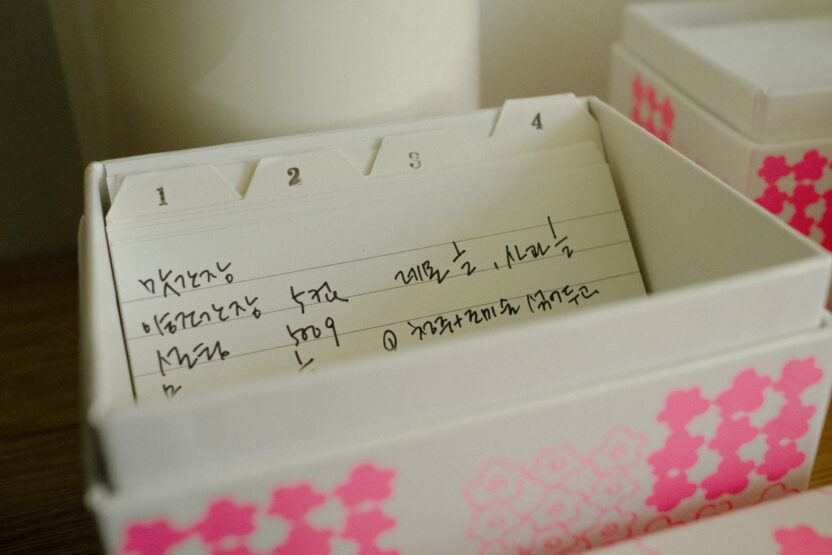 1 2 3 4
맛간장
레몬 ½, 사과 ½
양조간장 5컵
설탕 500g
① 청주+맛미술 섞어두고
물